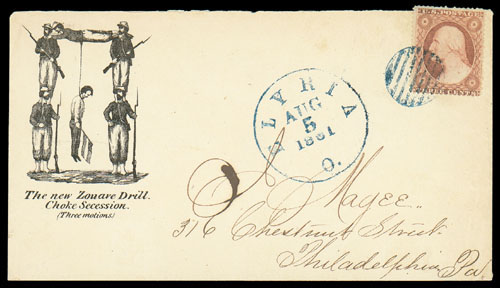 The new Zouave Drill.
Choke Secession.
(Three motions)
ELYRIA
AUG
5
1861
O.
U.S. POSTAGE
THREE CENTS
J. Magee
316 Chestnut Street
Philadelphia Pa.